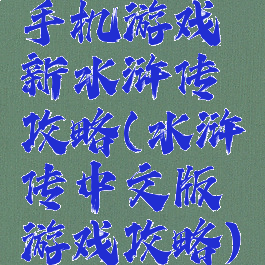 手机游戏
新水浒传
攻略(水浒
传中文版
游戏攻略)